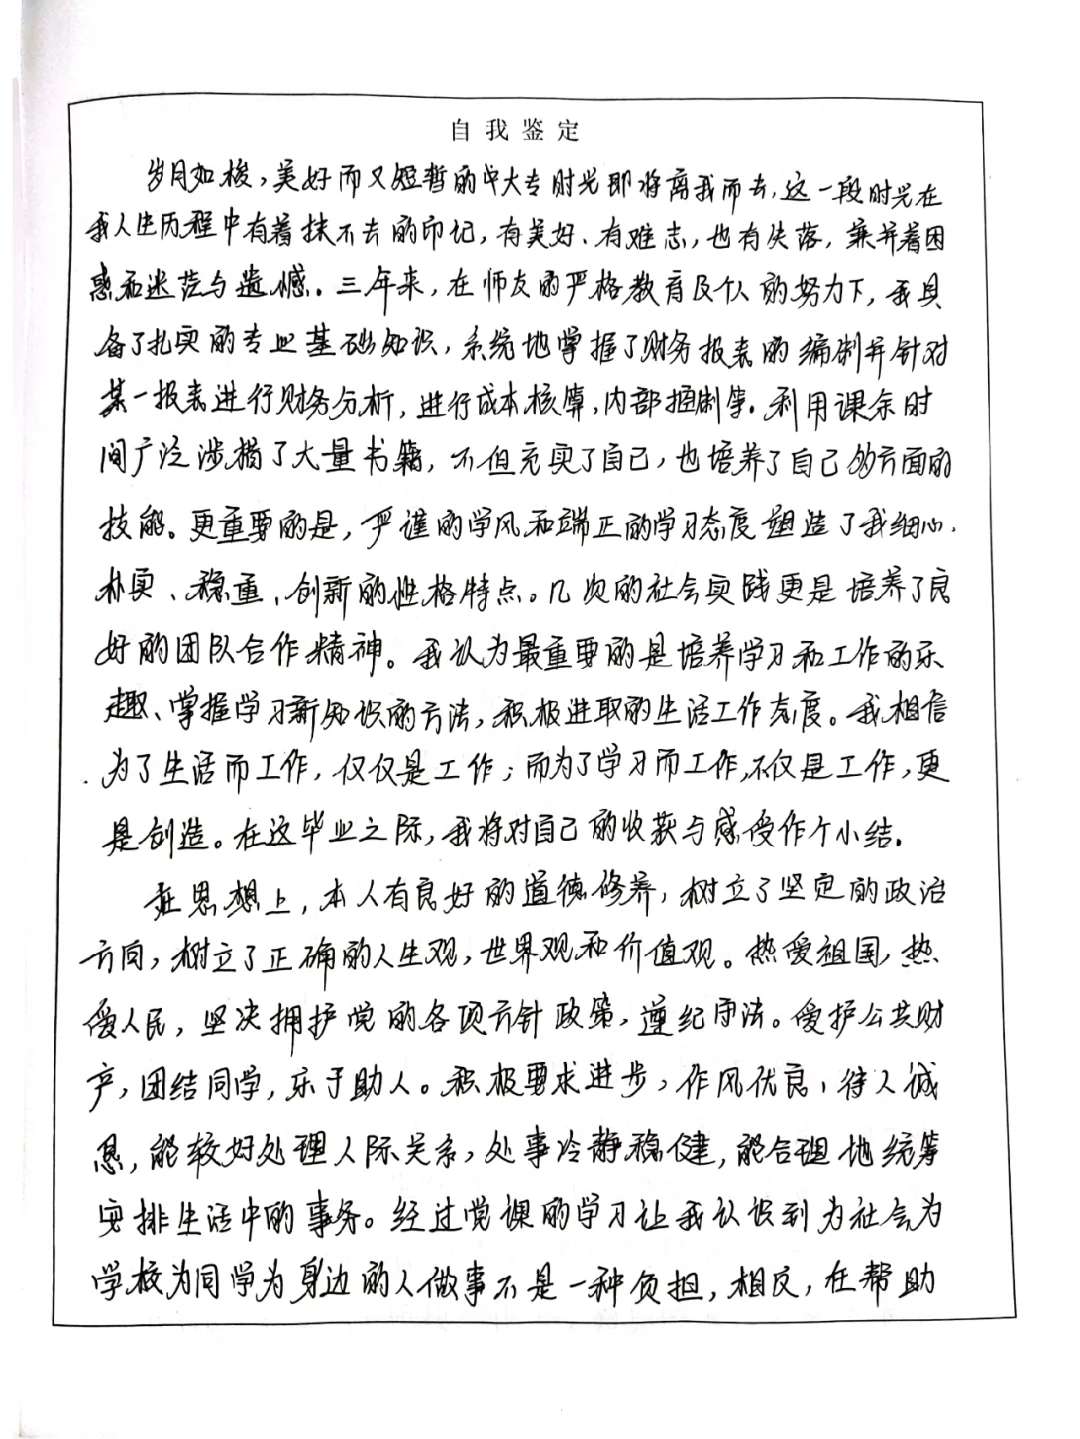 自我鉴定
岁月如梭，美好而又短暂的大专时光即将离我而去，这一段时光在
我人生历程中有着抹不去的印记，有美好、有难忘，也有失落，兼并着困
惑和迷茫与遗憾。三年来，在师友的严格教育及个人的努力下，我具
备了扎实的专业基础知识，系统地掌握了财务报表的编制并针对
某一报表进行财务分析，进行成本核算，内部控制等。利用课余时
间广泛涉猎了大量书籍，不但充实了自己，也培养了自己的方面的
技能。更重要的是，严谨的学风和端正的学习态度塑造了我细心、
朴实、稳重、创新的性格特点。几次的社会实践更是培养了良
好的团队合作精神。我认为最重要的是培养学习和工作的乐
趣、掌握学习新知识的方法，积极进取的生活工作态度。我相信
为了生活而工作，仅仅是工作；而为了学习而工作，不仅是工作，更
是创造。在这毕业之际，我将对自己的收获与感受作个小结。
在思想上，本人有良好的道德修养，树立了坚定的政治
方向，树立了正确的人生观，世界观和价值观。热爱祖国，热
爱人民，坚决拥护党的各项方针政策，遵纪守法。爱护公共财
产，团结同学，乐于助人。积极要求进步，作风优良，待人诚
恳，能较好处理人际关系，处事冷静稳健，能合理地统筹
安排生活中的事务。经过党课的学习让我认识到为社会为
学校为同学为身边的人做事不是一种负担，相反，在帮助